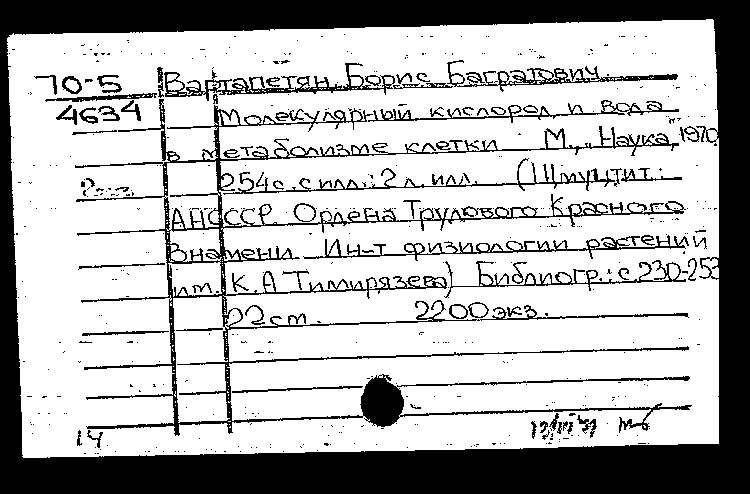 70-5 Вартапетян, Борис Багратович.
4634 Молекулярный кислород и вода
в метаболизме клетки М., "Наука", 1970
254с. с илл.; 2 л. илл. (Шмуцтит.:
АНСССР. Ордена Трудового Красного
Знамени Ин-т физиологии растений
им. К.А Тимирязева) Библиогр.: с. 230-253
22 см. 2200 экз.
14